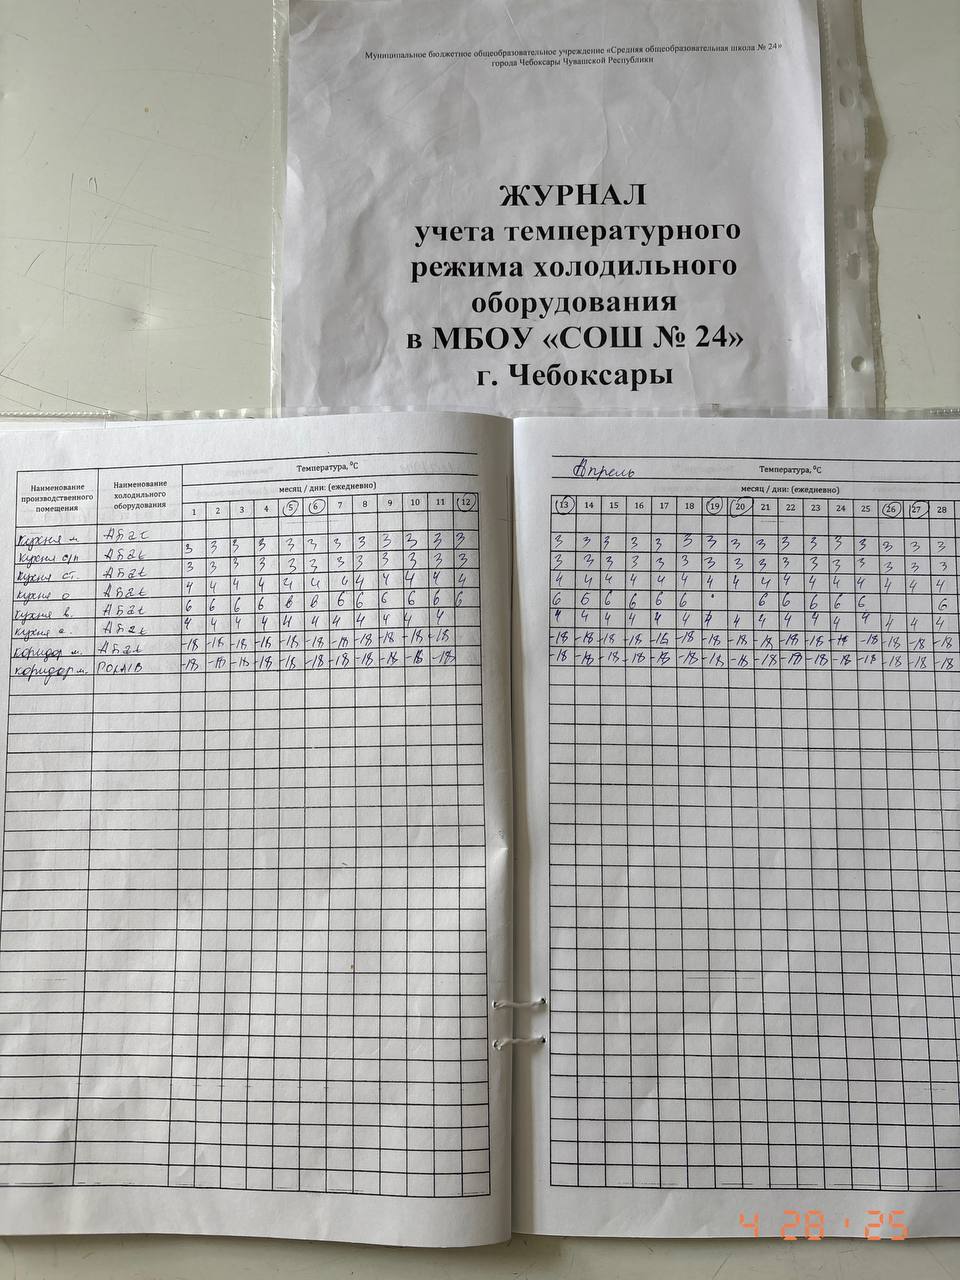 Муниципальное бюджетное общеобразовательное учреждение «Средняя общеобразовательная школа № 24»
города Чебоксары Чувашской Республики
ЖУРНАЛ
учета температурного
режима холодильного
оборудования
в МБОУ «СОШ № 24»
г. Чебоксары
Наименование производственного помещения
Наименование холодильного оборудования
Температура, °С
месяц / дни: (ежедневно)
1 2 3 4 5 6 7 8 9 10 11 12
Кухня м.
Кухня с/п 3 3 3 3 3 3 3 3 3 3 3 3
Кухня ст. 3 3 3 3 3 3 3 3 3 3 3 3
Кухня о 4 4 4 4 4 4 4 4 4 4 4 4
Кухня в. 6 6 6 6 6 6 6 6 6 6 6 6
Кухня 4 4 4 4 4 4 4 4 4 4 4
коридор м. -18 -18 -18 -18 -18 -18 -18 -18 -18 -18 -18
коридор м. POLAIR -18 -18 -18 -18 -18 -18 -18 -18 -18 -18 -18
Апрель Температура, °С
месяц / дни: (ежедневно)
13 14 15 16 17 18 19 20 21 22 23 24 25 26 27 28
3 3 3 3 3 3 3 3 3 3 3 3 3 3 3 3
3 3 3 3 3 3 3 3 3 3 3 3 3 3 3 3
4 4 4 4 4 4 4 4 4 4 4 4 4 4 4 4
6 6 6 6 6 6 6 6 6 6 6 6
4 4 4 4 4 4 4 4 4 4 4 4 4 4 4 4
-18 -18 -18 -18 -18 -18 -18 -18 -18 -18 -18 -18 -18 -18 -18
-18 -18 -18 -18 -18 -18 -18 -18 -18 -18 -18 -18 -18 -18 -18 -18
4 28 '25